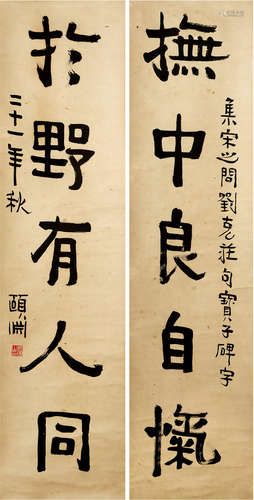 撫中良自慨
集宋之問劉克莊句寶子碑字
於野有人同
二十一年秋
頤淵